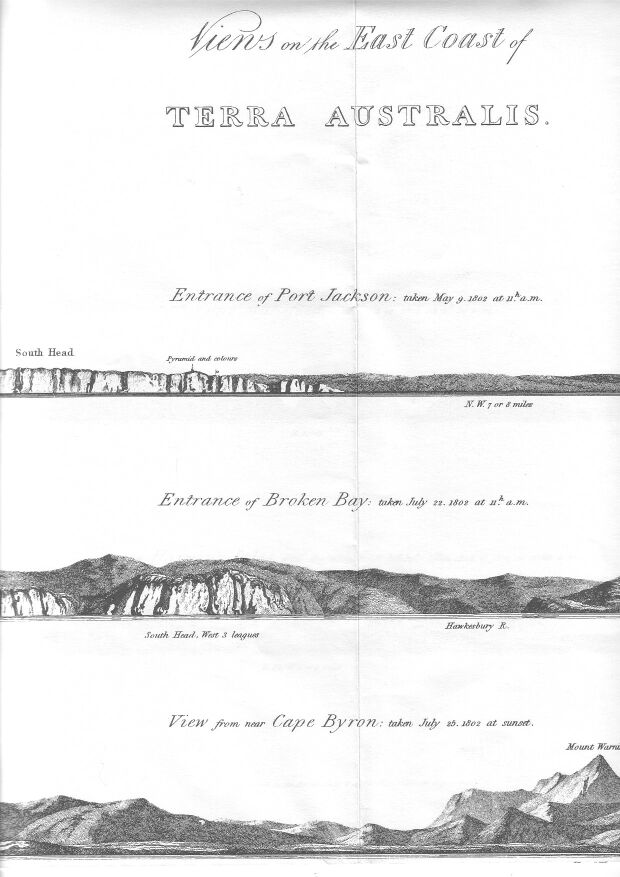 Views on the East Coast of
TERRA AUSTRALIS.
Entrance of Port Jackson: taken May 9. 1802 at 11.h a.m.
South Head
Pyramid and colours
N.W. 7 or 8 miles
Entrance of Broken Bay: taken July 22. 1802 at 11.h a.m.
South Head, West 3 leagues
Hawkesbury R.
View from near Cape Byron: taken July 25. 1802 at sunset.
Mount Warni